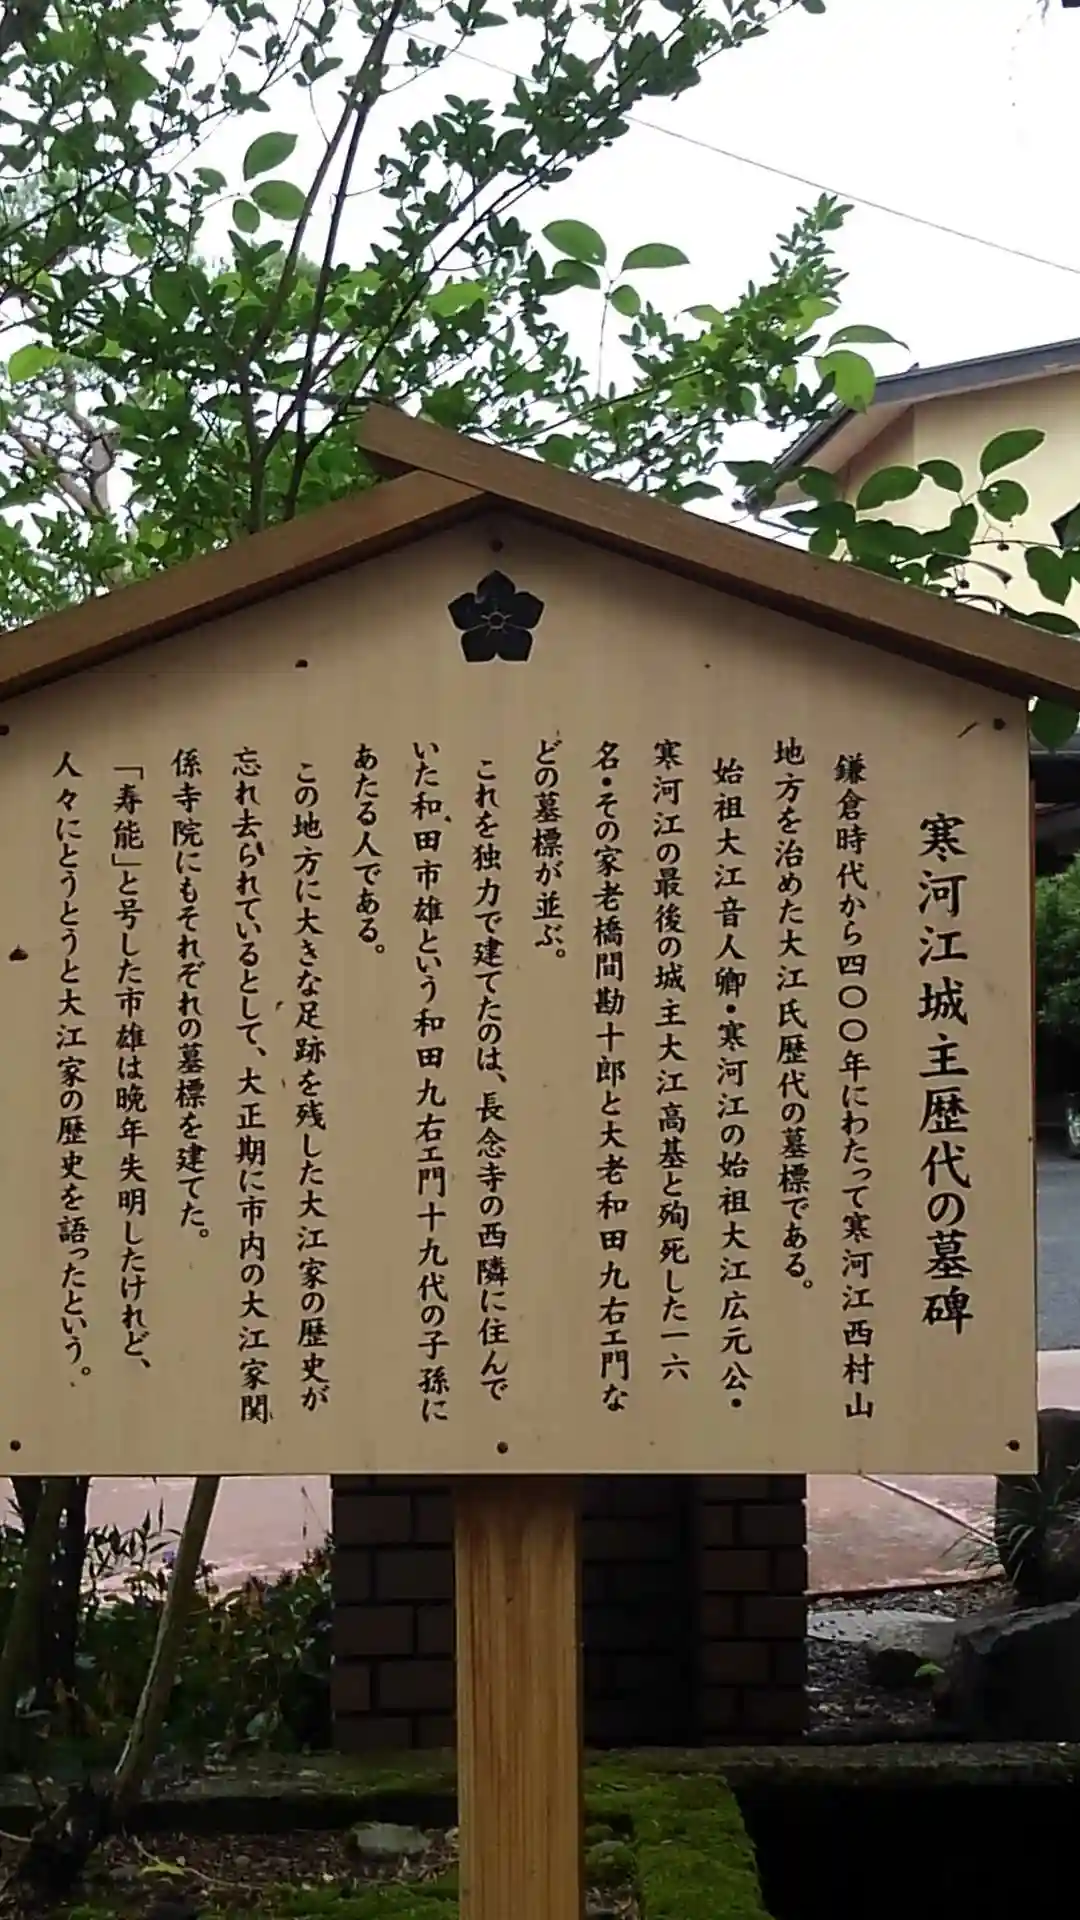 寒河江城主歴代の墓碑
鎌倉時代から四〇〇年にわたって寒河江西村山
地方を治めた大江氏歴代の墓標である。
始祖大江音人卿・寒河江の始祖大江広元公・
寒河江の最後の城主大江高基と殉死した一六
名・その家老橋間勘十郎と大老和田九右エ門な
どの墓標が並ぶ。
これを独力で建てたのは、長念寺の西隣に住んで
いた和田市雄という和田九右エ門十九代の子孫に
あたる人である。
この地方に大きな足跡を残した大江家の歴史が
忘れ去られているとして、大正期に市内の大江家関
係寺院にもそれぞれの墓標を建てた。
「寿能」と号した市雄は晩年失明したけれど、
人々にとうとうと大江家の歴史を語ったという。